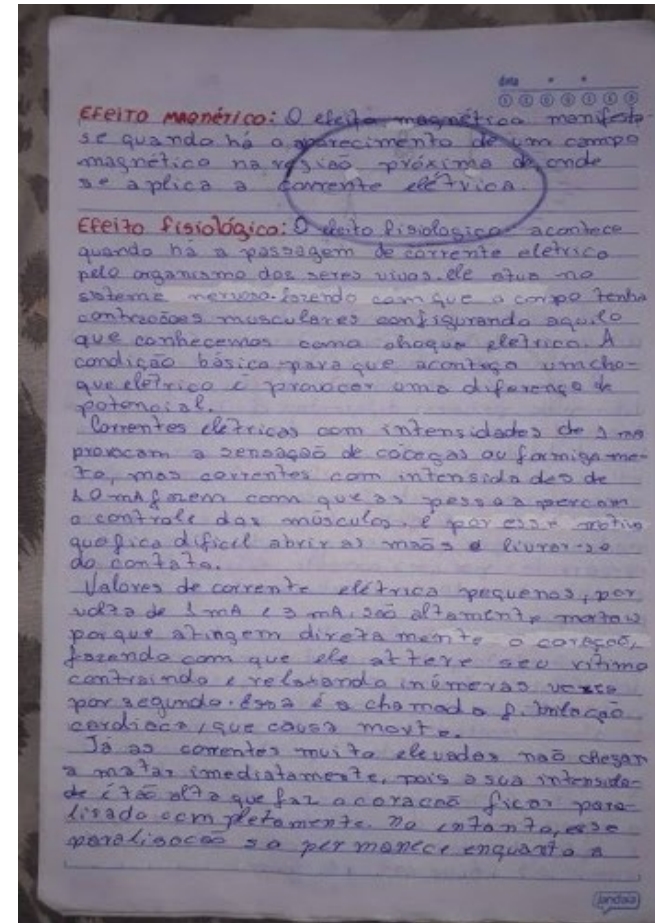 data
EFEITO MAGNÉTICO: O efeito magnético manifesta-
se quando há o aparecimento de um campo
magnético na região próxima de onde
se aplica a corrente elétrica.
Efeito fisiológico: O efeito fisiologico acontece
quando há a passagem de corrente eletrica
pelo organismo dos seres vivos. ele atua no
sistema nervoso. fazendo com que o corpo tenha
contrações musculares configurando aquilo
que conhecemos como choque eletrico. A
condição básica para que aconteça um cho-
que elétrico é provocar uma diferença de
potencial.
Correntes elétricas com intensidades de 1 ma
provocam a sensação de cócegas ou formigame-
to, mas correntes com intensidades de
10 mA fazem com que as pessoas percam
o controle dos músculos. é por esse motivo
que fica dificil abrir as mãos e livrar-se
do contato.
Valores de corrente elétrica pequenos, por
volta de 1 mA e 3 mA. são altamente mortais
porque atingem diretamente o coração,
fazendo com que ele altere seu ritimo
contraindo e relaxando inúmeras vezes
por segundo. Essa é a chamada fibrilação
cardiaca, que causa morte.
Já as correntes muito elevadas não chegam
a matar imediatamente, pois a sua intensida-
de é tão alta que faz o coração ficar para-
lisado completamente. no entanto, esse
paralisação so permanece enquanto a
jandaia